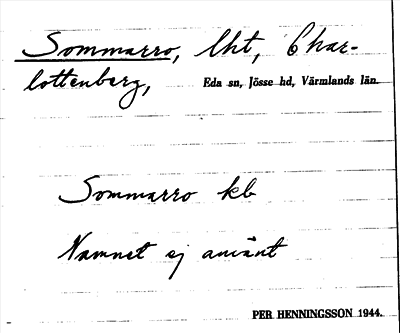 Sommarro, lht, Char-
lottenberg, Eda sn, Jösse hd, Värmlands län.
Sommarro kb
Namnet ej använt
PER HENNINGSSON 1944.